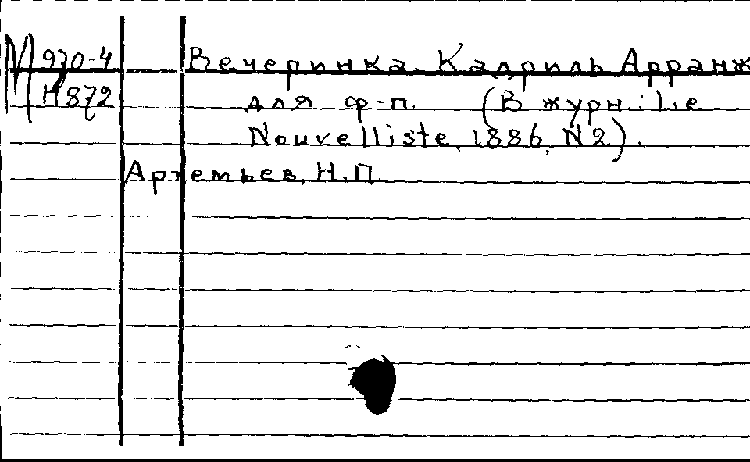 М 970-4 Вечеринка. Кадриль. Арранж
Н872 для ф-п. (В журн.: Le
Nouvelliste, 1886, N2).
Артемьев, Н.П.